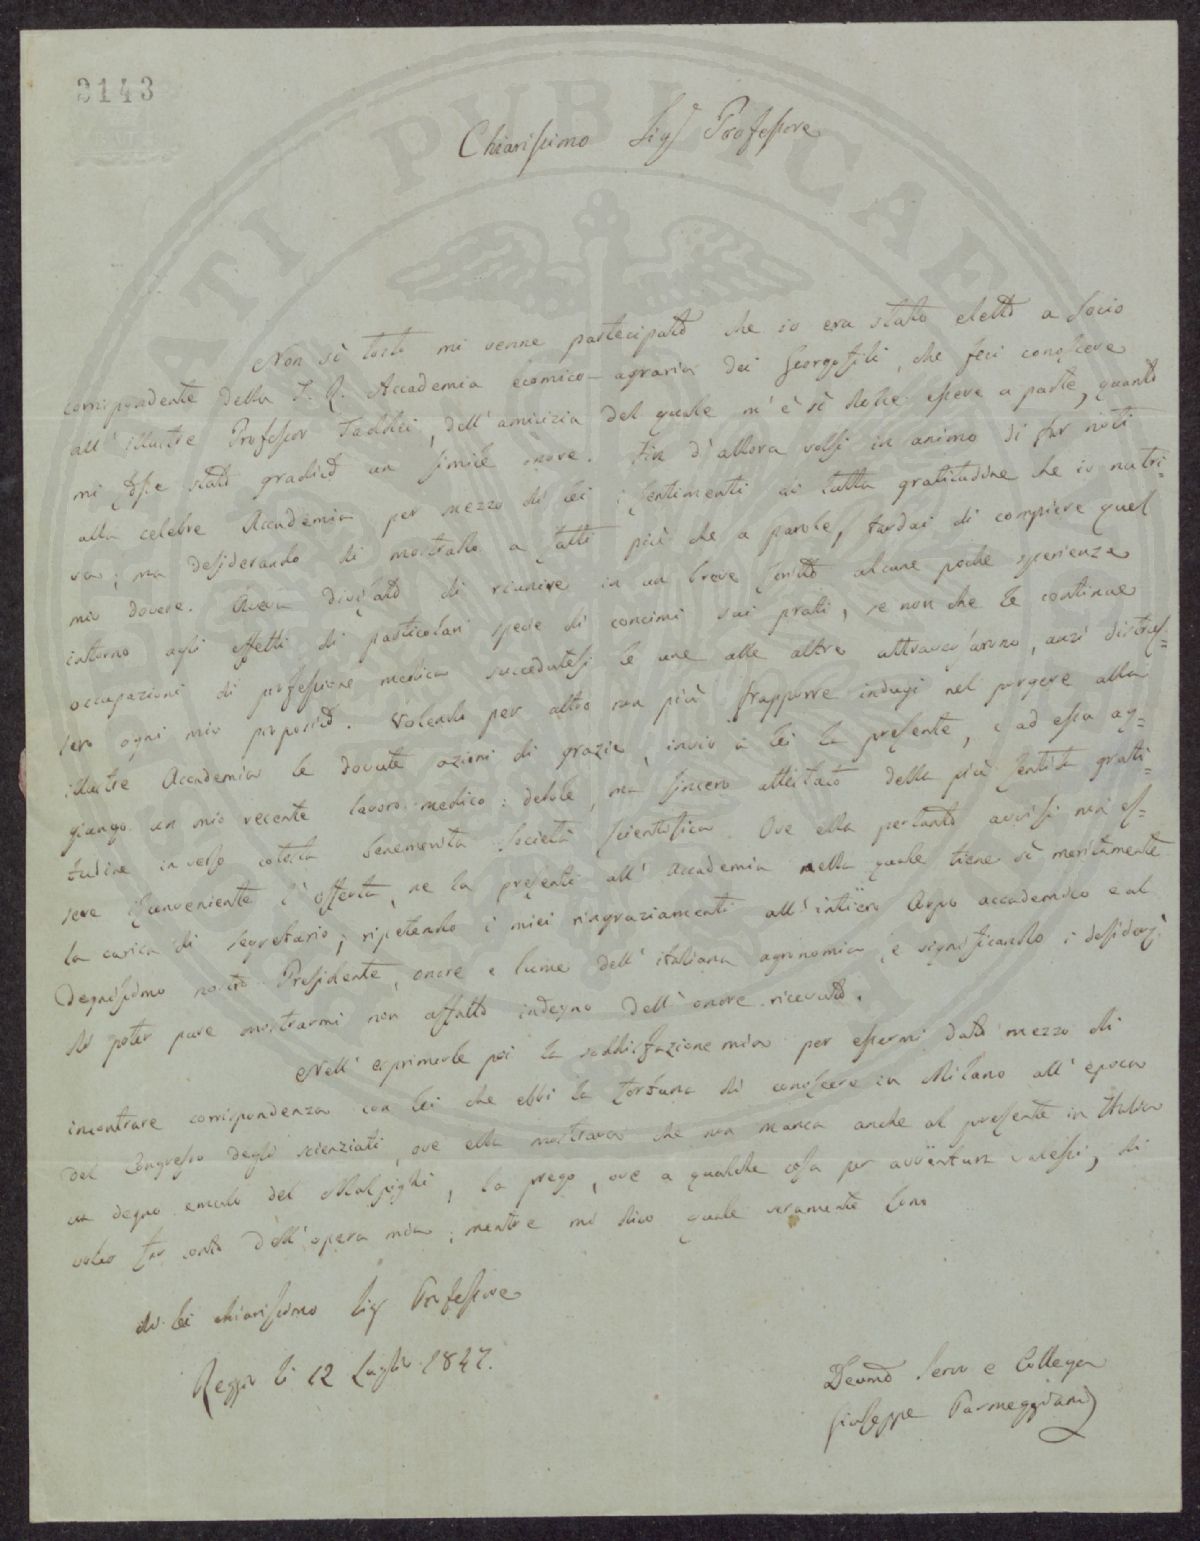 2143
Chiarissimo Sig.r Professore
Non sì tosto mi venne partecipato che io era stato eletto a Socio
corrispondente della I. R. Accademia economico-agraria dei Georgofili, che feci conoscere
all' illustre Professor Taddei, dell' amicizia del quale m' è sì dolce essere a parte, quanto
mi fosse stato gradito un simile onore. Fin d' allora volsi in animo di far noti
alla celebre Accademia per mezzo di lei i sentimenti di tutta gratitudine che io nutri-
va; ma desiderando di mostrarlo a fatti più che a parole, tardai di compiere quel
mio dovere. Aveva divisato di riunire in un breve scritto alcune poche sperienze
intorno agli effetti di particolari specie di concimi sui prati, se non che le continue
occupazioni di professione medica succedutesi le une alle altre attraversarono, anzi distrus-
sero ogni mio proposito. Volendo per altro non più frapporre indugi nel porgere alla
illustre Accademia le dovute azioni di grazie, invio a lei la presente, e ad essa ag-
giungo un mio recente lavoro medico: debole, ma sincero attestato della più sentita grati-
tudine inverso cotesta benemerita Società scientifica. Ove ella pertanto avvisi non es-
sere isconveniente l' offerta, ne la presenti all' Accademia nella quale tiene sì meritamente
la carica di segretario; ripetendo i miei ringraziamenti all' intiero Corpo accademico e al
degnissimo nostro Presidente, onore e lume dell' italiana agronomia, e significando i desiderj
di poter pure mostrarmi non affatto indegno dell' onore ricevuto.
Nell' esprimerle poi la soddisfazione mia per essermi dato mezzo di
incontrare corrispondenza con lei che ebbi la fortuna di conoscere in Milano all' epoca
del Congresso degli scienziati, ove ella mostrava che non manca anche al presente in Italia
un degno emulo del Malpighi, la prego, ove a qualche cosa per avventura valessi, di
voler far conto dell' opera mia; mentre mi dico quale veramente sono
di lei chiarissimo Sig.r Professore
Reggio li 12 Luglio 1847.
Devmo Servo e Collega
Giuseppe Parmeggiani